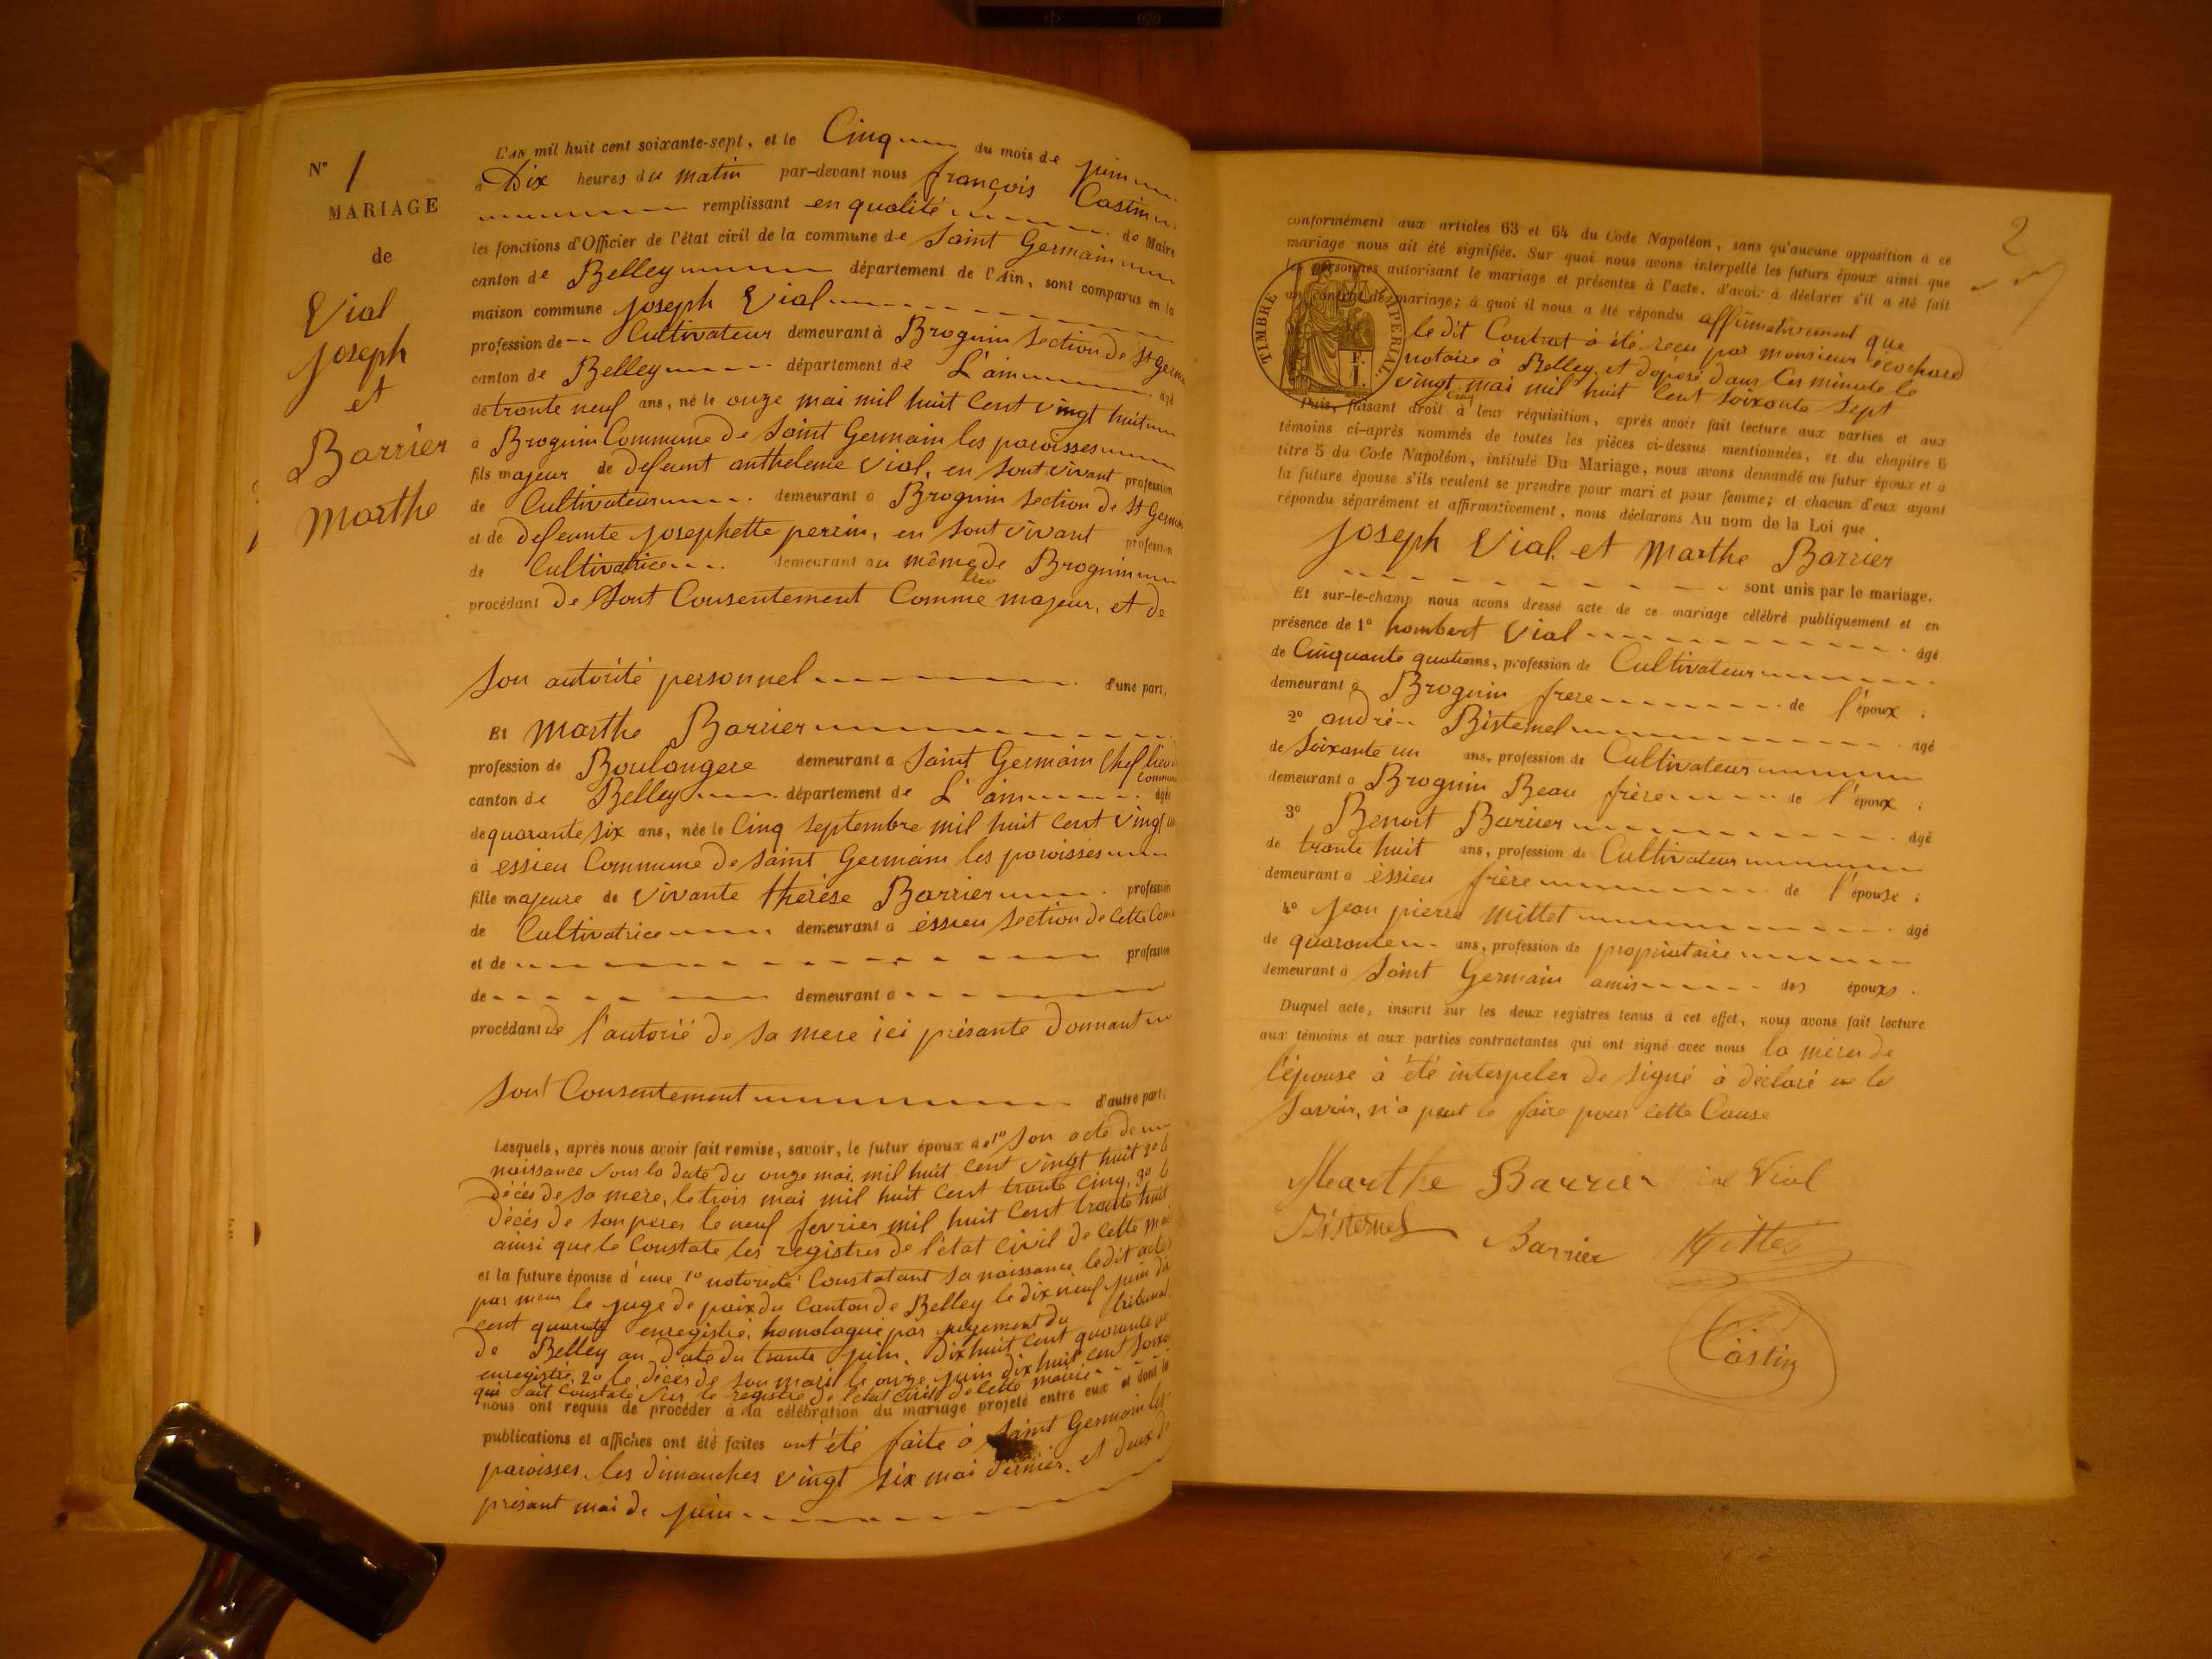 N° 1
MARIAGE
de
Vial
Joseph
et
Barrier
Marthe
L'AN mil huit cent soixante-sept, et le Cinq du mois de juin
à Dix heures du matin par-devant nous françois Castin
remplissant en qualité de Maire
les fonctions d'Officier de l'état civil de la commune de Saint Germain
canton de Belley département de l'Ain, sont comparus en la
maison commune Joseph Vial
profession de Cultivateur demeurant à Brognin Section de St Germ
canton de Belley département de L'ain âgé
de trante neuf ans, né le onze mai mil huit Cent vingt huit
à Brognin Commune de Saint Germain les paroisses
fils majeur de defeunt anthelme Vial, en Sont vivant profession
de Cultivateur demeurant à Brognin Section de St Germain
et de defeunte Josephette perrin, en Sont vivant profession
de Cultivatrice demeurant au même lieu de Brognin
procédant de Sont Consentement Comme majeur, et de
Son autorité personnel d'une part,
Et Marthe Barrier
profession de Boulangere demeurant à Saint Germain Chef lieu Commune
canton de Belley département de L'ain âgée
de quarante six ans, née le Cinq Septembre mil huit Cent vingt
à essieu Commune de Saint Germain les paroisses
fille majeure de vivante thérèse Barrier profession
de Cultivatrice demeurant à éssieu Section de Cette Com
et de profession
de demeurant à
procédant de l'autorié de Sa mere ici présante Donnant
Sont Consentement d'autre part,
Lesquels, après nous avoir fait remise, savoir, le futur époux de 1° Son acte de
naissance Sous la date du onze mai, mil huit Cent vingt huit 2° le
décès de Sa mere, le trois mai mil huit Cent trante Cinq, 3° le
décès de Son peres le neuf fevrier mil huit Cent trante huit
ainsi que le Constate les registres de l'état Civil de Cette m
et la future épouse d'une 1° notorieté Constatant Sa naissance, le dit acte
par le juge de paix du Canton de Belley le dix neuf juin dix
cent quarante enregistré, homologué par jugement du tribunal
de Belley au date du trante juin, Dix huit Cent quarante
enregistré, 2° le décès de Son mari le onze juin dix huit Cent Soixa
qui Sait Constaté Sur le registre de l'état Civil de Cette mairie
nous ont requis de procéder à la célébration du mariage projeté entre eux et dont les
publications et affiches ont été faites ont été faite à Saint Germain les
paroisses, les dimanches vingt Six mai dernier, et deux du
présant mai de juin
2
conformément aux articles 63 et 64 du Code Napoléon, sans qu'aucune opposition à ce
mariage nous ait été signifiée. Sur quoi nous avons interpellé les futurs époux ainsi que
les personnes autorisant le mariage et présentes à l'acte, d'avoir à déclarer s'il a été fait
un contrat de mariage; à quoi il nous a été répondu affirmativement que
le dit Contrat à été recu par monsieur écochard
notaire à Belley, et déposé dans Ces minute le
vingt cinq mai mil huit Cent Soixante Sept
TIMBRE IMPERIAL
Puis, faisant droit à leur réquisition, après avoir fait lecture aux parties et aux
témoins ci-après nommés de toutes les pièces ci-dessus mentionnées, et du chapitre 6
titre 5 du Code Napoléon, intitulé Du Mariage, nous avons demandé au futur époux et à
la future épouse s'ils veulent se prendre pour mari et pour femme; et chacun d'eux ayant
répondu séparément et affirmativement, nous déclarons Au nom de la Loi que
Joseph Vial, et Marthe Barrier
sont unis par le mariage.
Et sur-le-champ nous avons dressé acte de ce mariage célébré publiquement et en
présence de 1° hombert Vial âgé
de Cinquante quatre ans, profession de Cultivateur
demeurant à Brognin frere de l'époux ;
2° andré Bisternel âgé
de Soixante un ans, profession de Cultivateur
demeurant à Brognin Beau frère de l'époux ;
3° Benoit Barrier âgé
de trante huit ans, profession de Cultivateur
demeurant à éssieu frère de l'épouse ;
4° Jean pierre Mittet âgé
de quarante ans, profession de propriataire
demeurant à Saint Germain amis des époux.
Duquel acte, inscrit sur les deux registres tenus à cet effet, nous avons fait lecture
aux témoins et aux parties contractantes qui ont signé avec nous la mères de
l'épouse à été interpeler de signé à déclaré ne le
Savoir, n'a peut le faire pour Cette Cause
Marthe Barrier Vial
Bisternel Barrier Mittet
Castin